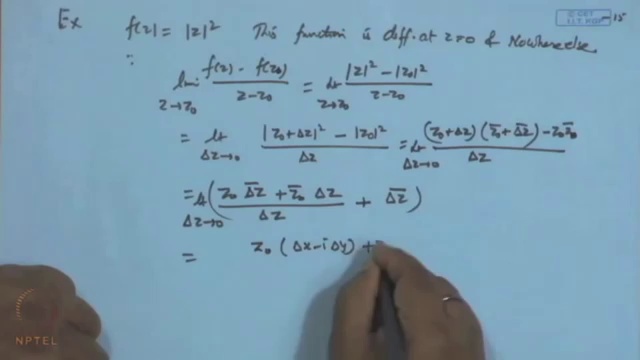 © CET
I.I.T. KGP
Ex f(z) = |z|² This function is diff. at z=0 & Nowhere else.
∵ lim z→z₀ (f(z) - f(z₀))/(z - z₀) = lt z→z₀ (|z|² - |z₀|²)/(z - z₀)
= lt Δz→0 (|z₀+Δz|² - |z₀|²)/Δz = lt Δz→0 ((z₀+Δz)(z̄₀+Δz̄) - z₀z̄₀)/Δz
= lt Δz→0 ((z₀ Δz̄ + z̄₀ Δz)/Δz + Δz̄)
= z₀ (Δx - iΔy) +
NPTEL